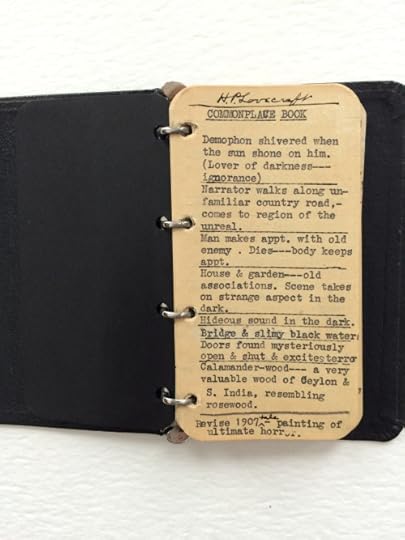 H.P. Lovecraft
COMMONPLACE BOOK
Demophon shivered when
the sun shone on him.
(Lover of darkness---
ignorance)
Narrator walks along un-
familiar country road,-
comes to region of the
unreal.
Man makes appt. with old
enemy . Dies---body keeps
appt.
House & garden---old
associations. Scene takes
on strange aspect in the
dark.
Hideous sound in the dark.
Bridge & slimy black water
Doors found mysteriously
open & shut & excitesterro
Calamander-wood--- a very
valuable wood of Ceylon &
S. India, resembling
rosewood.
Revise 1907 tale - painting of
ultimate horror.